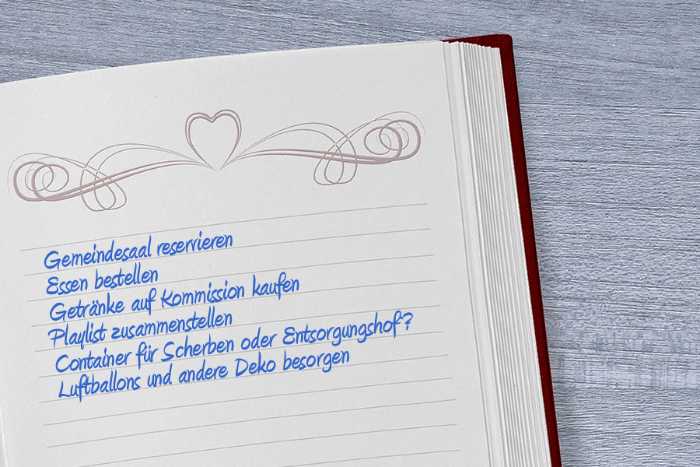 Gemeindesaal reservieren
Essen bestellen
Getränke auf Kommission kaufen
Playlist zusammenstellen
Container für Scherben oder Entsorgungshof?
Luftballons und andere Deko besorgen